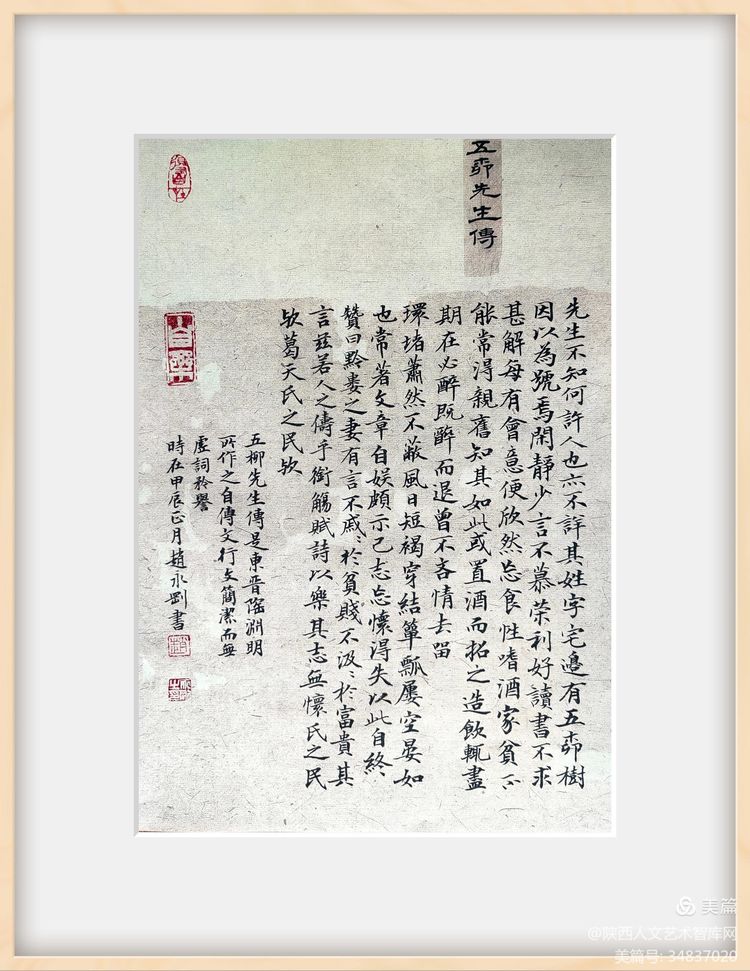 五桺先生傳
先生不知何許人也亦不詳其姓字宅邊有五桺樹
因以為號焉閑靜少言不慕荣利好讀書不求
甚解每有會意便欣然忘食性嗜酒家貧不
能常得親舊知其如此或置酒而招之造飲輒盡
期在必醉既醉而退曾不吝情去留
環堵蕭然不蔽風日短褐穿結簞瓢屢空晏如
也常著文章自娛頗示己志忘懷得失以此自終
贊曰黔婁之妻有言不戚〻於貧賤不汲〻於富貴其
言茲若人之儔乎銜觴賦詩以樂其志無懷氏之民
歟葛天氏之民歟
五柳先生傳是東晉陶淵明
所作之自傳文行文簡潔而無
虛詞矜譽
時在甲辰正月趙永剛書
美篇
@陕西人文艺术智库网
美篇号: 34837020